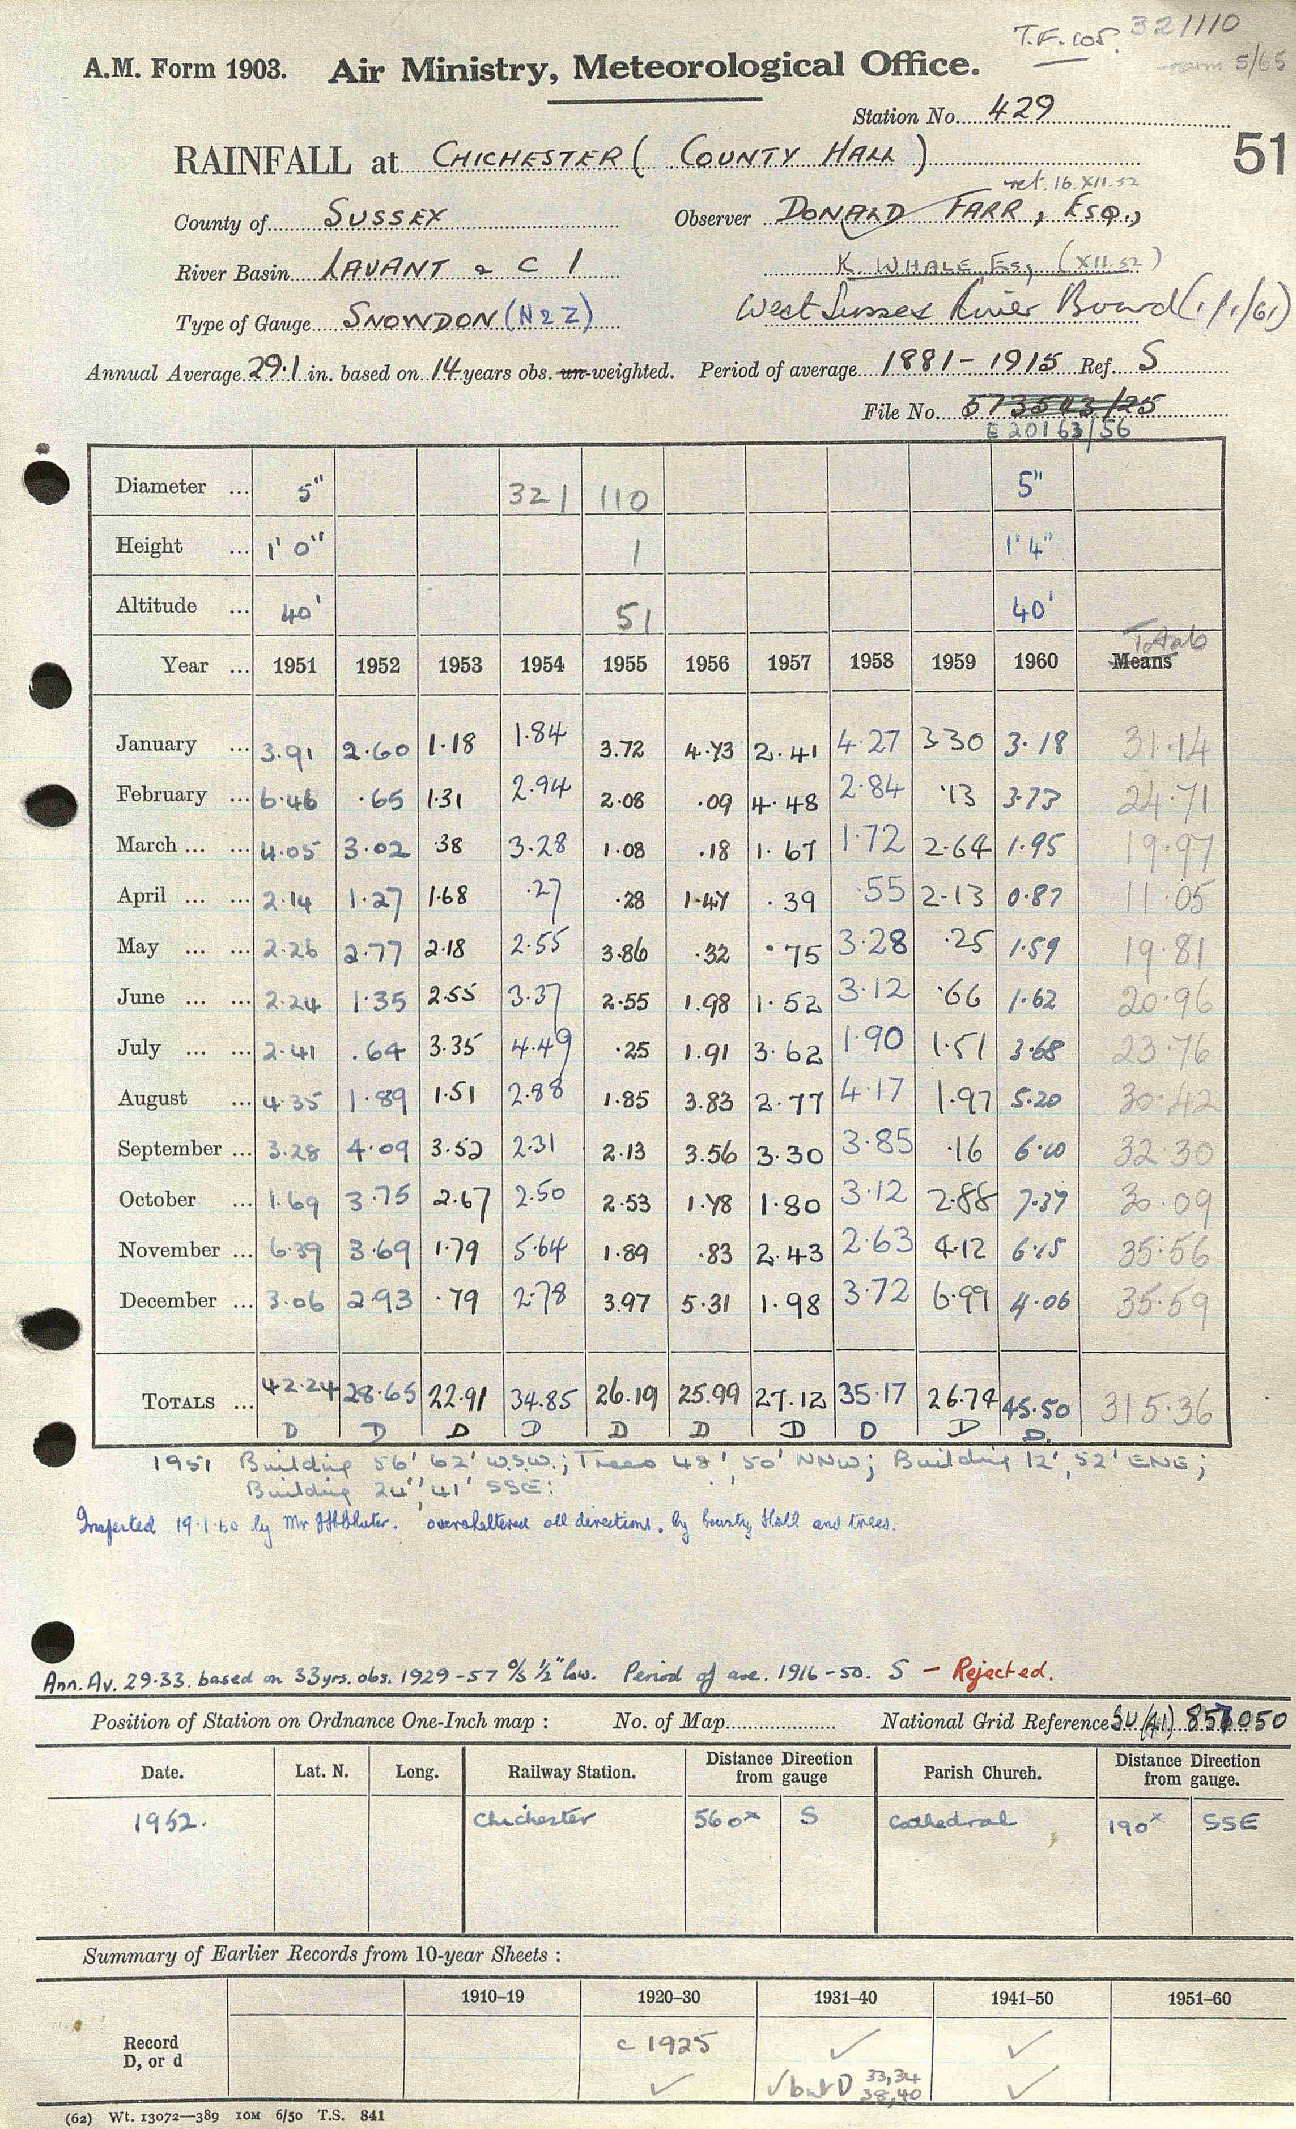 T.F. cor. 321110
5/65
A.M. Form 1903. Air Ministry, Meteorological Office.
Station No. 429
51
RAINFALL at CHICHESTER ( COUNTY HALL )
ret. 16.XII.52
County of SUSSEX Observer DONALD FARR, ESQ.,
River Basin LAVANT & C 1 K WHALE, Esq, (XII.52)
Type of Gauge SNOWDON (N2Z) West Sussex River Board (1/1/61)
Annual Average 29.1 in. based on 14 years obs. un-weighted. Period of average 1881-1915 Ref. S
File No. 573543/25
E 20163/56
Diameter ... 5" 321 110 5"
Height ... 1' 0" 1 1' 4"
Altitude ... 40' 51 40'
Totals
Year ... 1951 1952 1953 1954 1955 1956 1957 1958 1959 1960 Means
January ... 3.91 2.60 1.18 1.84 3.72 4.73 2.41 4.27 3.30 3.18 31.14
February ... 6.46 .65 1.31 2.94 2.08 .09 4.48 2.84 .13 3.73 24.71
March ... ... 4.05 3.02 .38 3.28 1.08 .18 1.67 1.72 2.64 1.95 19.97
April ... ... 2.14 1.27 1.68 .27 .28 1.47 .39 .55 2.13 0.87 11.05
May ... ... 2.26 2.77 2.18 2.55 3.86 .32 .75 3.28 .25 1.59 19.81
June ... ... 2.24 1.35 2.55 3.37 2.55 1.98 1.52 3.12 .66 1.62 20.96
July ... ... 2.41 .64 3.35 4.49 .25 1.91 3.62 1.90 1.51 3.68 23.76
August ... 4.35 1.89 1.51 2.88 1.85 3.83 2.77 4.17 1.97 5.20 30.42
September ... 3.28 4.09 3.52 2.31 2.13 3.56 3.30 3.85 .16 6.10 32.30
October ... 1.69 3.75 2.67 2.50 2.53 1.78 1.80 3.12 2.88 7.37 30.09
November ... 6.39 3.69 1.79 5.64 1.89 .83 2.43 2.63 4.12 6.15 35.56
December ... 3.06 2.93 .79 2.78 3.97 5.31 1.98 3.72 6.99 4.06 35.59
TOTALS ... 42.24 28.65 22.91 34.85 26.19 25.99 27.12 35.17 26.74 45.50 315.36
D D D D D D D D D D.
1951 Building 56' 62' W.S.W.; Trees 48', 50' NNW; Building 12', 52' ENE;
Building 24', 41' SSE.
Inspected 19.1.60 by Mr oversheltered all directions, by County Hall and trees.
Ann. Av. 29.33. based on 33yrs. obs. 1929-57 % ½" low. Period of ave. 1916-50. S - Rejected.
Position of Station on Ordnance One-Inch map : No. of Map National Grid Reference SU (41) 857050
Date. Lat. N. Long. Railway Station. Distance Direction from gauge Parish Church. Distance Direction from gauge.
1952. Chichester 560x S Cathedral 190x SSE
Summary of Earlier Records from 10-year Sheets :
1910–19 1920–30 1931–40 1941–50 1951–60
Record c 1925 ✓ ✓
D, or d ✓ ✓ but D 33,34 38,40 ✓
(62) Wt. 13072—389 10M 6/50 T.S. 841